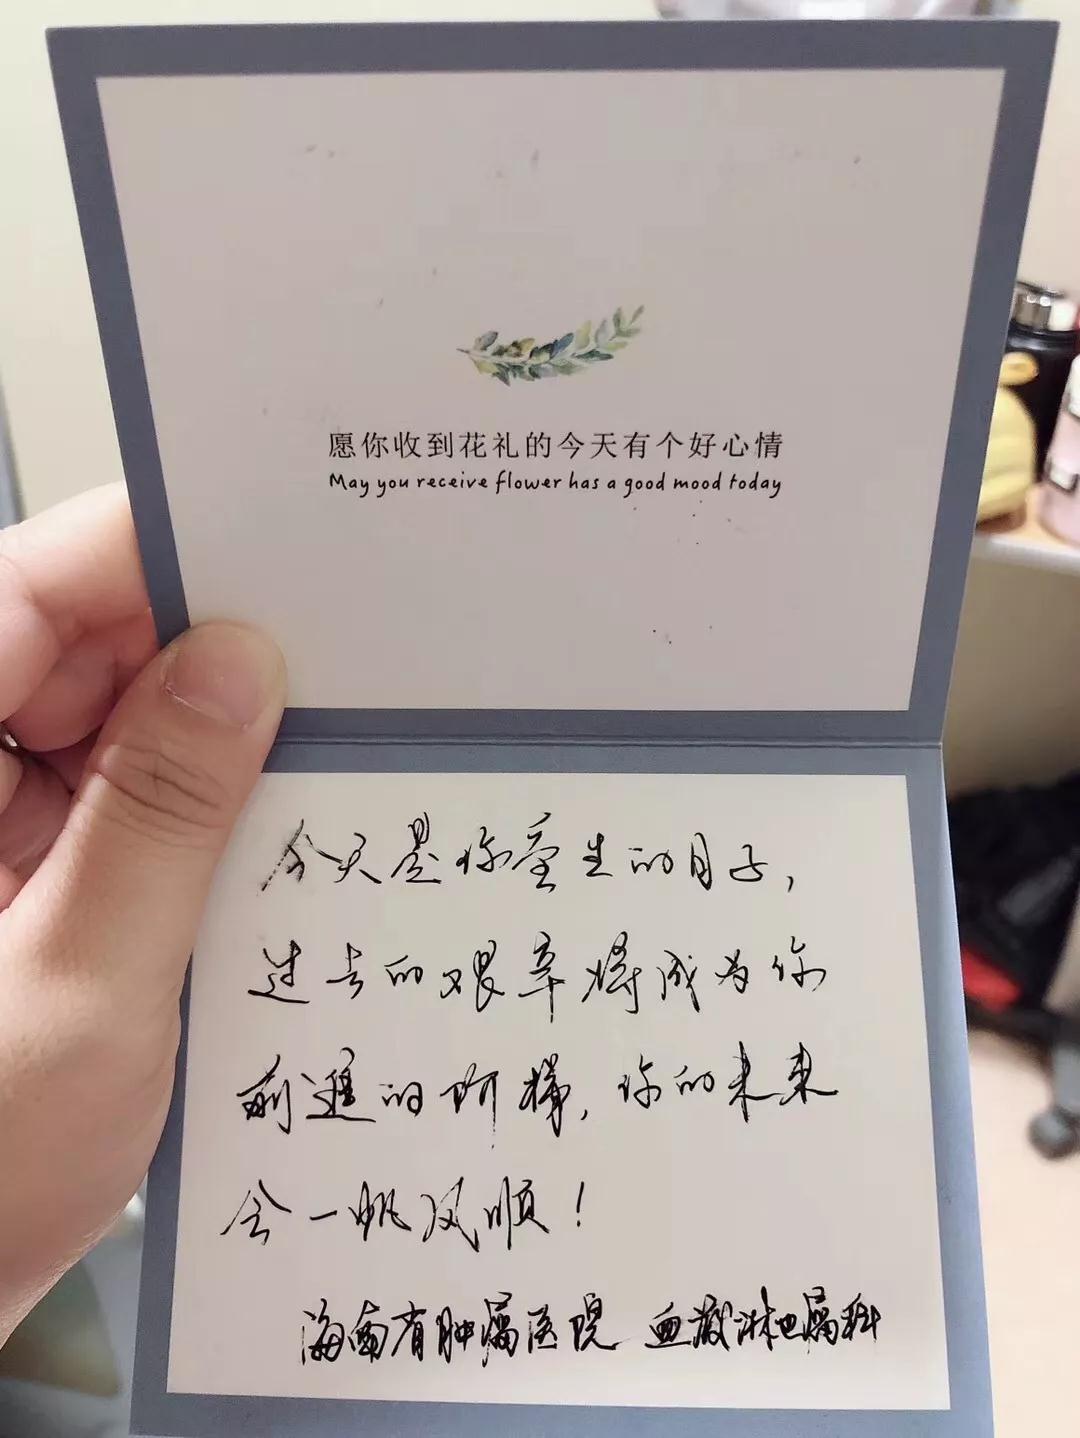 愿你收到花礼的今天有个好心情
May you receive flower has a good mood today
今天是你重生的日子，
过去的艰辛将成为你
前进的阶梯，你的未来
会一帆风顺！
海南省肿瘤医院 血液淋巴瘤科